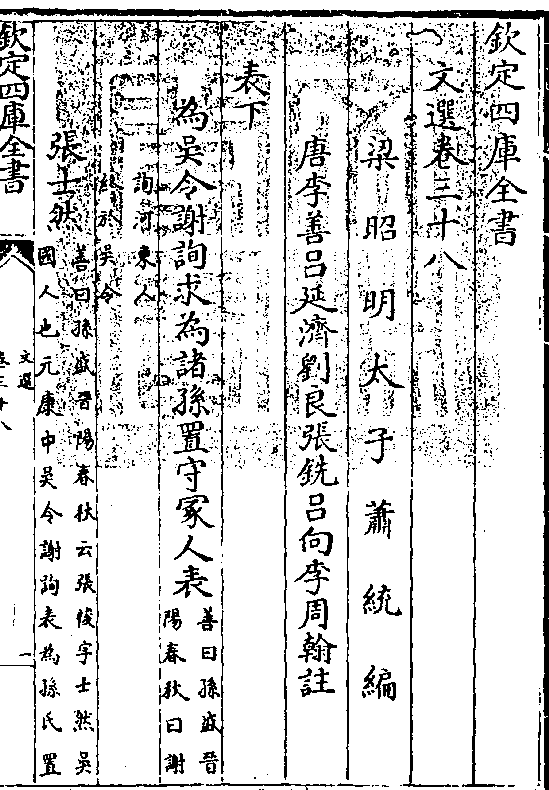 欽定四庫全書
文選卷三十八
梁昭明太子蕭統編
唐李善呂延濟劉良張銑呂向李周翰註
表下
為吳令謝詢求為諸孫置守冢人表
善曰孫盛晉
陽春秋曰謝
詢河東人
終於吳令
張士然
善曰孫盛晉陽春秋云張悛字士然吳
國人也元康中吳令謝詢表為孫氏置
欽定四庫全書
文選
卷三十八
一